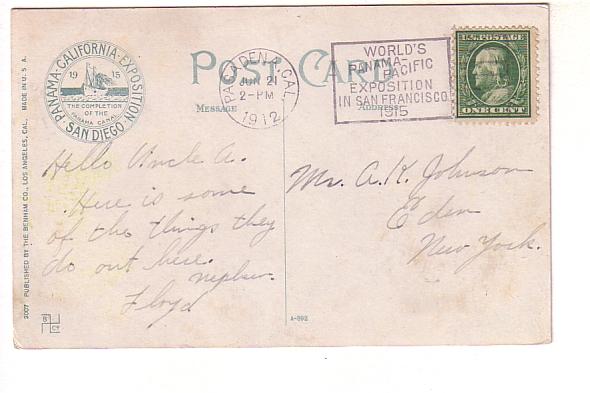 PANAMA-CALIFORNIA-EXPOSITION
19 15
THE COMPLETION
OF THE
PANAMA CANAL
SAN DIEGO
POST CARD
MESSAGE
ADDRESS
PASADENA, CAL.
JUN 21
2-PM
1912
WORLD'S
PANAMA-
PACIFIC
EXPOSITION
IN SAN FRANCISCO
1915
U.S. POSTAGE
ONE CENT
Hello Uncle A.
Here is some
of the things they
do out here.
nephew
Floyd
Mr. A. K. Johnson
Eden
New York.
2007 PUBLISHED BY THE BENHAM CO., LOS ANGELES, CAL. MADE IN U. S. A.
B
Co
A-892